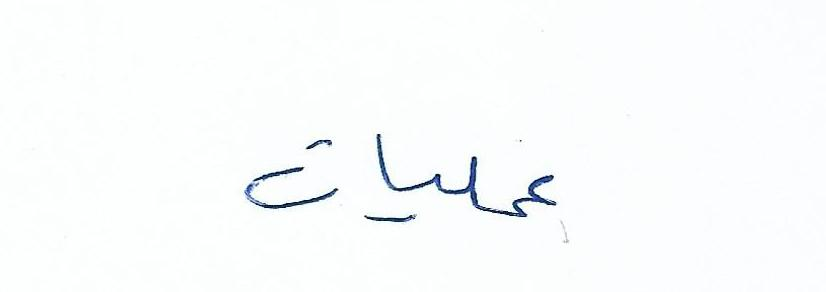 عمليات